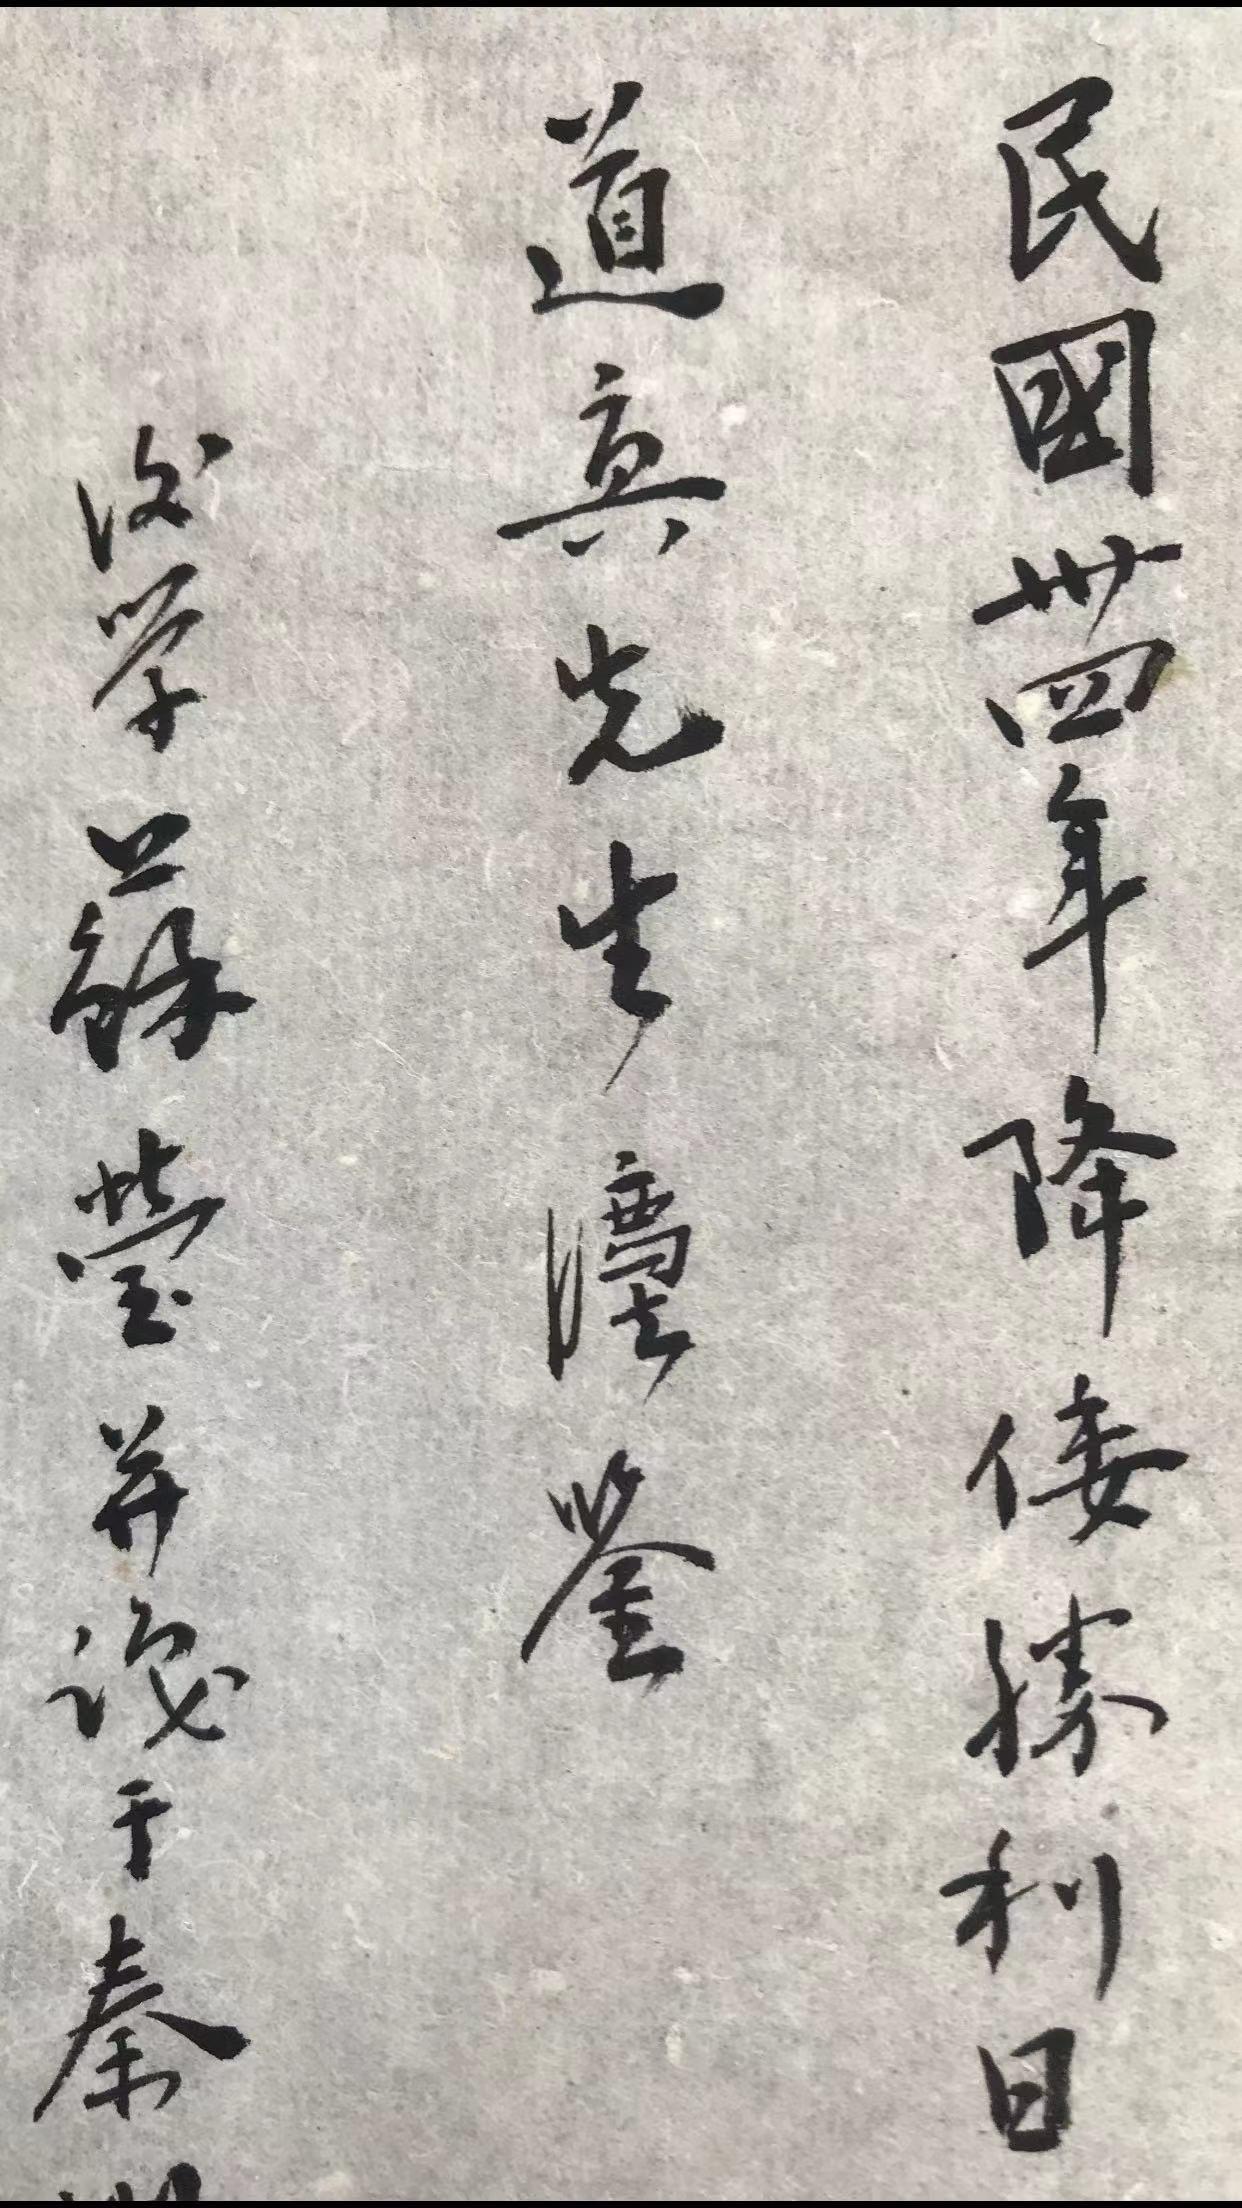 民國卅四年降倭勝利日
道真先生濡鑒
後學蘇瑩并識于秦